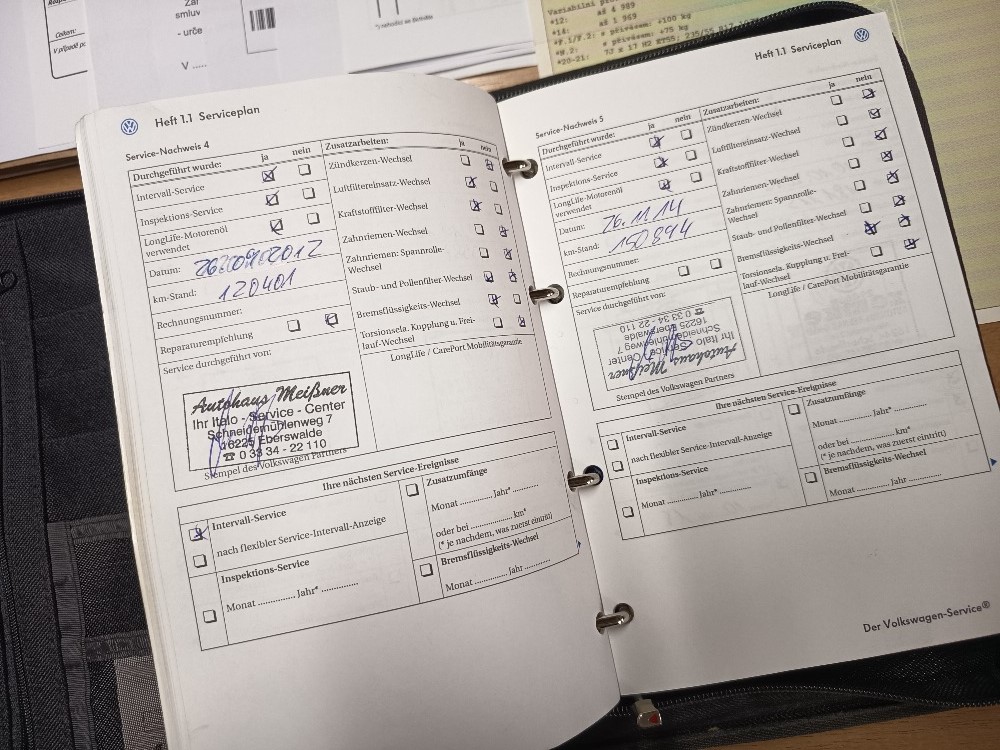 smluv
- urče
V .....
Celkem:
V případě
*) nehodící se škrtněte
Variabilní
*12: aš 4 989
*14: aš 1 969
*F.1/F.2: s přívěsem: +100 kg
*N.2: s přívěsem: +75 kg
*20-21:
Heft 1.1 Serviceplan
Service-Nachweis 4
Durchgeführt wurde: ja nein
Intervall-Service
Inspektions-Service
LongLife-Motorenöl
verwendet
Datum: 26.09.2012
km-Stand: 120401
Rechnungsnummer:
Reparaturempfehlung
Service durchgeführt von:
Autohaus Meißner
Ihr Italo - Service - Center
Schneidemühlenweg 7
16225 Eberswalde
☎ 0 33 34 - 22 110
Stempel des Volkswagen Partners
Zusatzarbeiten: ja nein
Zündkerzen-Wechsel
Luftfiltereinsatz-Wechsel
Kraftstofffilter-Wechsel
Zahnriemen-Wechsel
Zahnriemen: Spannrolle-
Wechsel
Staub- und Pollenfilter-Wechsel
Bremsflüssigkeits-Wechsel
Torsionsela. Kupplung u. Frei-
lauf-Wechsel
LongLife / CarePort Mobilitätsgarantie
Ihre nächsten Service-Ereignisse
Intervall-Service
nach flexibler Service-Intervall-Anzeige
Inspektions-Service
Monat ............. Jahr* .............
Zusatzumfänge
Monat ............. Jahr* .............
oder bei ............... km*
(* je nachdem, was zuerst eintritt)
Bremsflüssigkeits-Wechsel
Monat ............. Jahr .............
Heft 1.1 Serviceplan
Service-Nachweis 5
Durchgeführt wurde: ja nein
Intervall-Service
Inspektions-Service
LongLife-Motorenöl
verwendet
Datum: 26.11.14
km-Stand: 150894
Rechnungsnummer:
Reparaturempfehlung
Service durchgeführt von:
Autohaus Meißner
Ihr Italo - Service - Center
Schneidemühlenweg 7
16225 Eberswalde
☎ 0 33 34 - 22 110
Stempel des Volkswagen Partners
Zusatzarbeiten: ja nein
Zündkerzen-Wechsel
Luftfiltereinsatz-Wechsel
Kraftstofffilter-Wechsel
Zahnriemen-Wechsel
Zahnriemen: Spannrolle-
Wechsel
Staub- und Pollenfilter-Wechsel
Bremsflüssigkeits-Wechsel
Torsionsela. Kupplung u. Frei-
lauf-Wechsel
LongLife / CarePort Mobilitätsgarantie
Ihre nächsten Service-Ereignisse
Intervall-Service
nach flexibler Service-Intervall-Anzeige
Inspektions-Service
Monat ............. Jahr* .............
Zusatzumfänge
Monat ............. Jahr* .............
oder bei ............... km*
(* je nachdem, was zuerst eintritt)
Bremsflüssigkeits-Wechsel
Monat ............. Jahr .............
Der Volkswagen-Service®